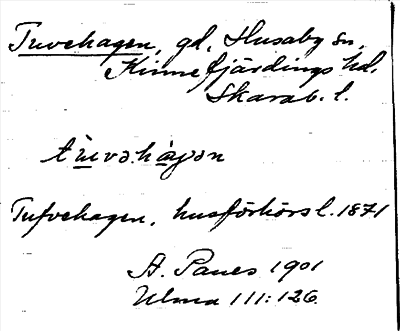 Tuvehagen, gd, Husaby sn,
Kinnefjärdings hd.
Skarab. l.
Tufvehagen, husförhörsl. 1871
A. Palm 1901
Ulma 111:126.